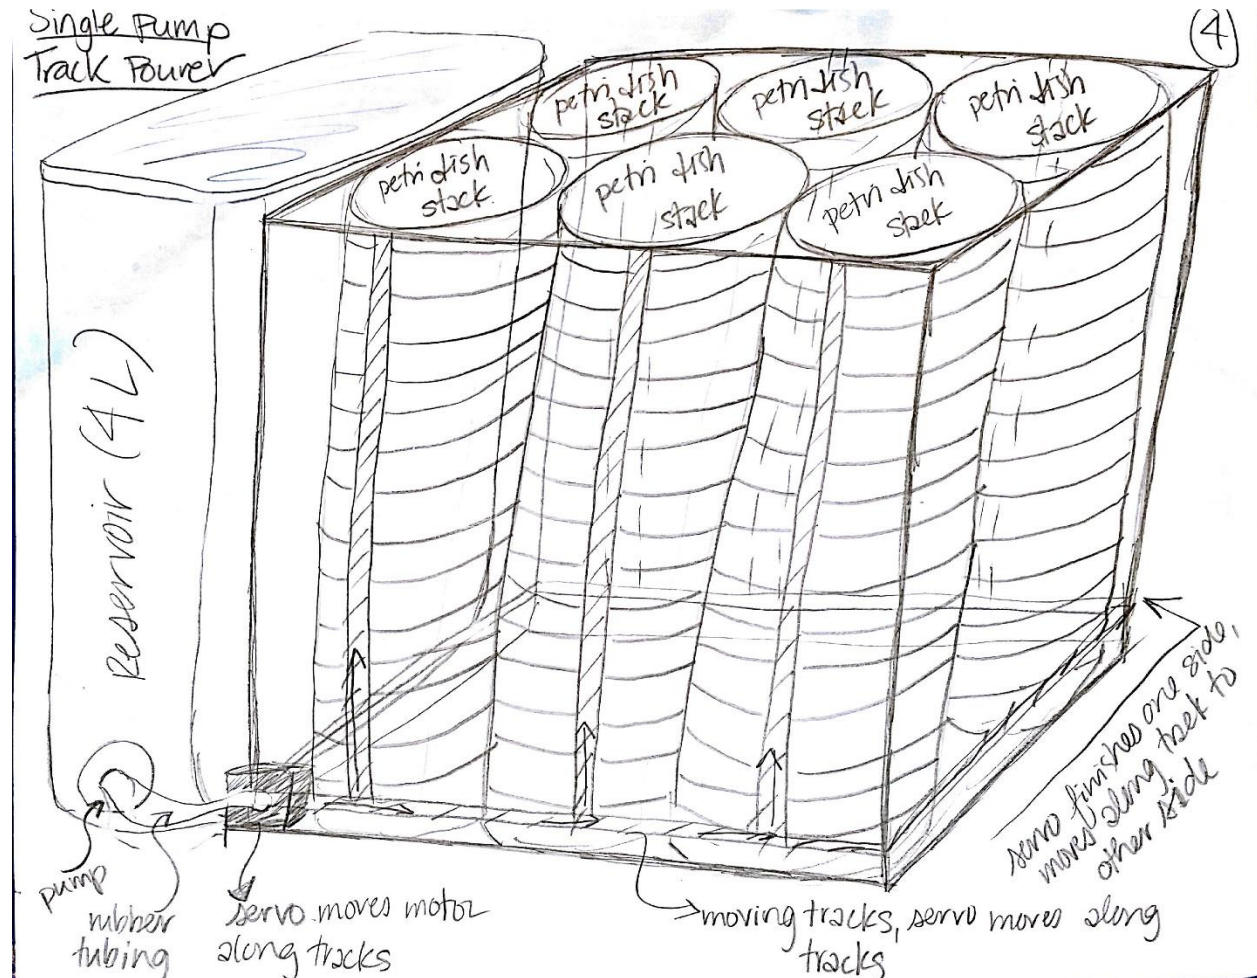 Single Pump
Track Pourer
4
petri dish
stack
petri dish
stack
petri dish
stack
petri dish
stack.
petri dish
stack
petri dish
stack
Reservoir (4L)
pump
rubber
tubing
servo moves motor
along tracks
moving tracks, servo moves along
tracks
servo finishes one side,
moves along track to
other side